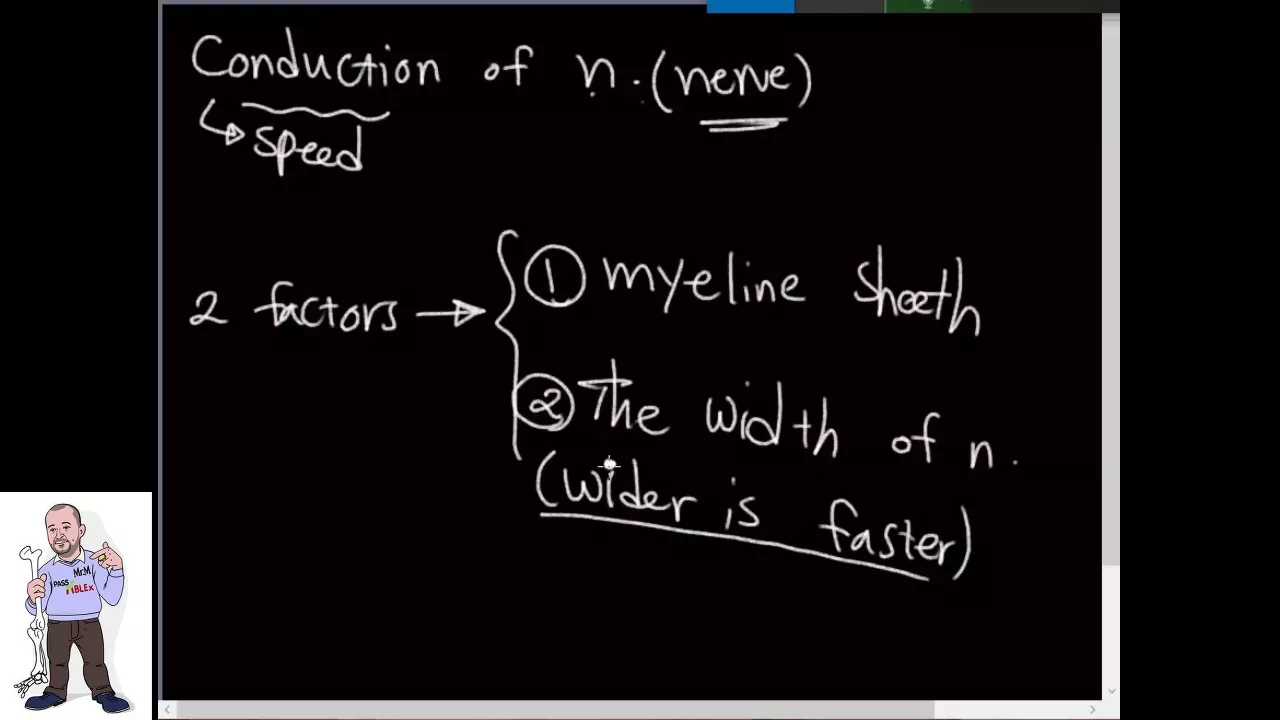 Conduction of n. (nerve)
speed
2 factors → { ① myeline sheeth
② The width of n.
(wider is faster)
Mr.M
PASS
MBLEx